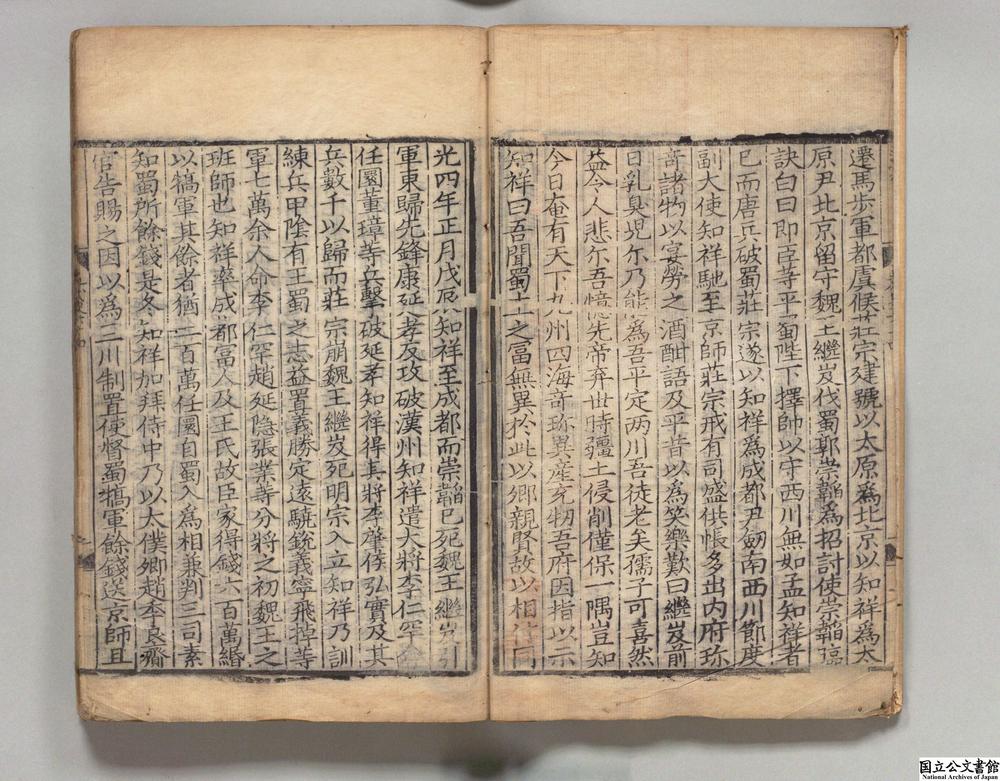 遷馬歩軍都虞候莊宗建號以太原爲北京以知祥爲太
原尹北京留守魏王繼岌伐蜀郭崇韜爲招討使崇韜臨
訣白曰即臣等平蜀陛下擇帥以守西川無如孟知祥者
已而唐兵破蜀莊宗遂以知祥爲成都尹劒南西川節度
副大使知祥馳至京師莊宗戒有司盛供帳多出内府珎
竒諸物以宴勞之酒酣語及平昔以爲笑樂歎曰繼岌前
日乳臭児尓乃能爲吾平定两川吾徒老矣孺子可喜然
益令人悲尓吾憶先帝弃世時疆土侵削僅保一隅豈知
今日奄有天下九州四海竒珎異産充牣吾府因指以示
知祥曰吾聞蜀土之富無異扵此以卿親賢故以相付同
光四年正月戊辰知祥至成都而崇韜已死魏王繼岌引
軍東歸先鋒康延孝反攻破漢州知祥遣大將李仁罕會
任圜董璋等兵擊破延孝知祥得其將李肇侯弘實及其
兵數千以歸而莊宗崩魏王繼岌死明宗入立知祥乃訓
練兵甲隂有王蜀之志益置義勝定遠驍銳義寧飛棹等
軍七萬余人命李仁罕趙延隐張業等分將之初魏王之
班師也知祥率成都富人及王氏故臣家得錢六百萬緡
以犒軍其餘者猶二百萬任圜自蜀入爲相兼判三司素
知蜀所餘錢是冬知祥加拜侍中乃以太僕卿趙季良齎
官告賜之因以爲三川制置使督蜀犒軍餘錢送京師且
国立公文書館
National Archives of Japan